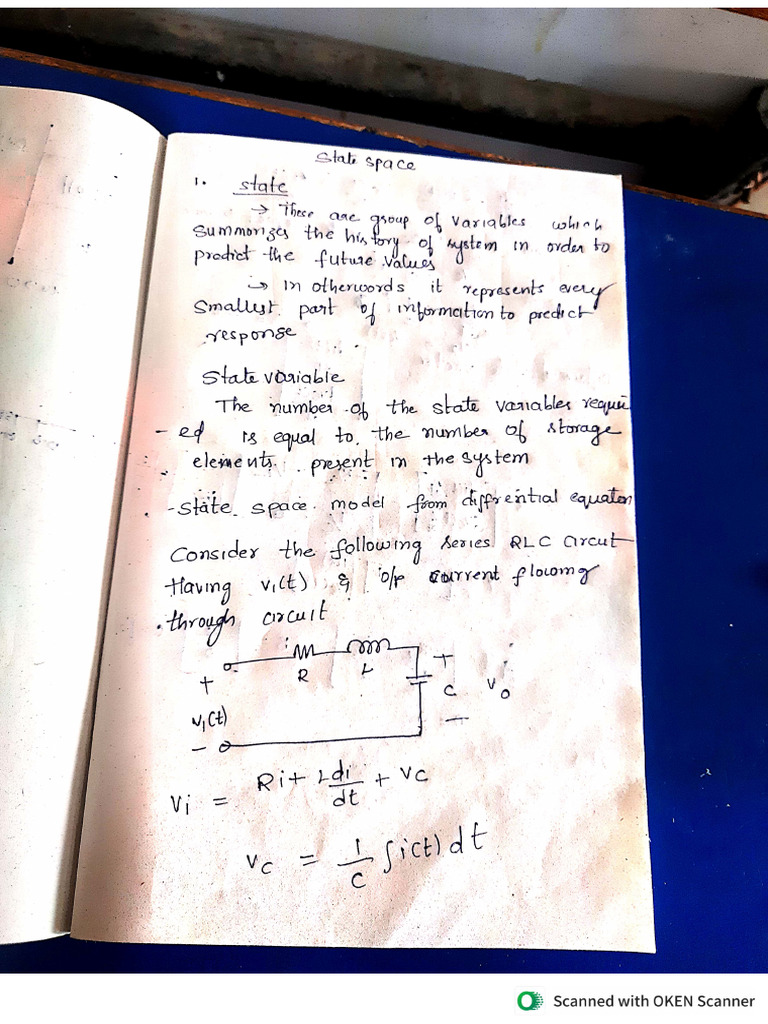 State space
1. state
→ These are group of variables which
summarizes the history of system in order to
predict the future values
→ In otherwords it represents every
smallest part of information to predict
response
State variable
The number of the state variables requir
- ed is equal to the number of storage
elements present in the system
- state space model from diffrential equation
Consider the following series RLC circuit
Having vi(t) & o/p current flowing
through circuit
i
R L
+ + C vo
vi(t) -
-
Vi = Ri + L di/dt + Vc
Vc = 1/C ∫ i(t) dt
Scanned with OKEN Scanner